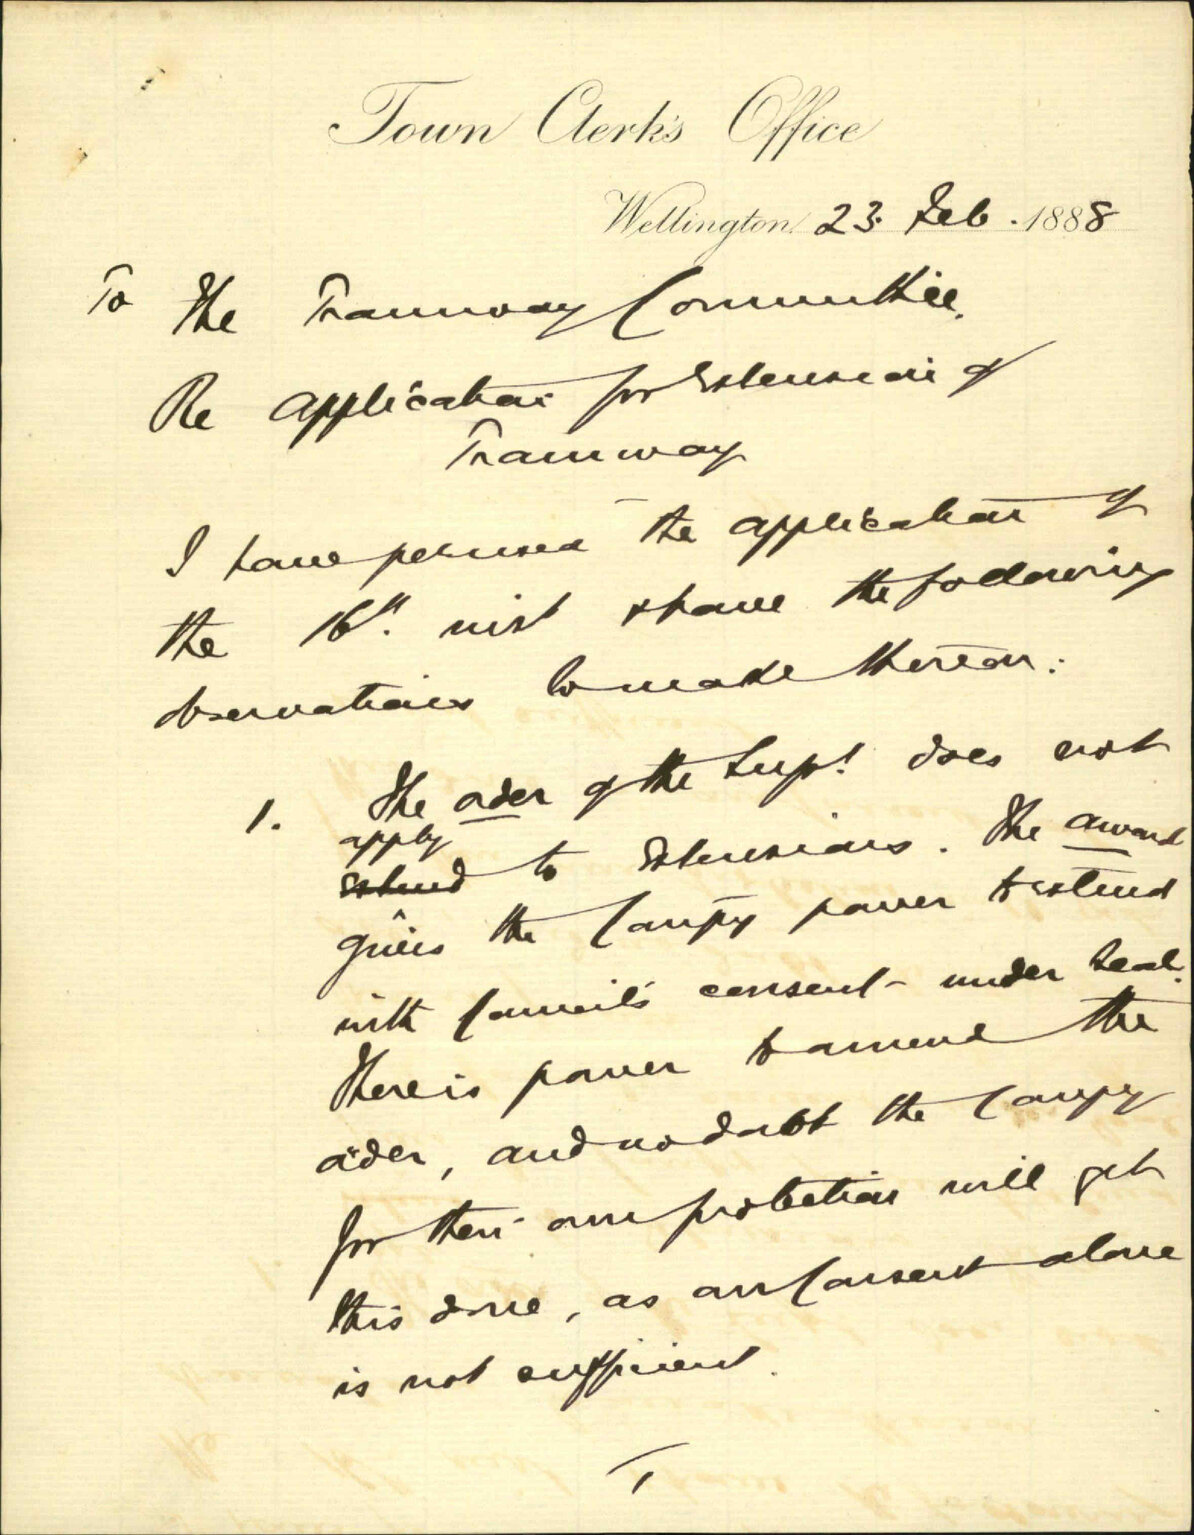 Town Clerk's Office
Wellington 23. Feb. 1888
To The Tramway Committee.
Re Application for Extension of
Tramway
I have perused the application of
the 16th. inst & have the following
observations to make thereon:
1. The order of the Supt. does not
apply
extend to Extensions. The award
gives the Compy power to extend
with Council's consent - under Seal.
There is power to amend the
order, and no doubt the Compy
for their own protection will get
this done, as our Consent alone
is not sufficient.